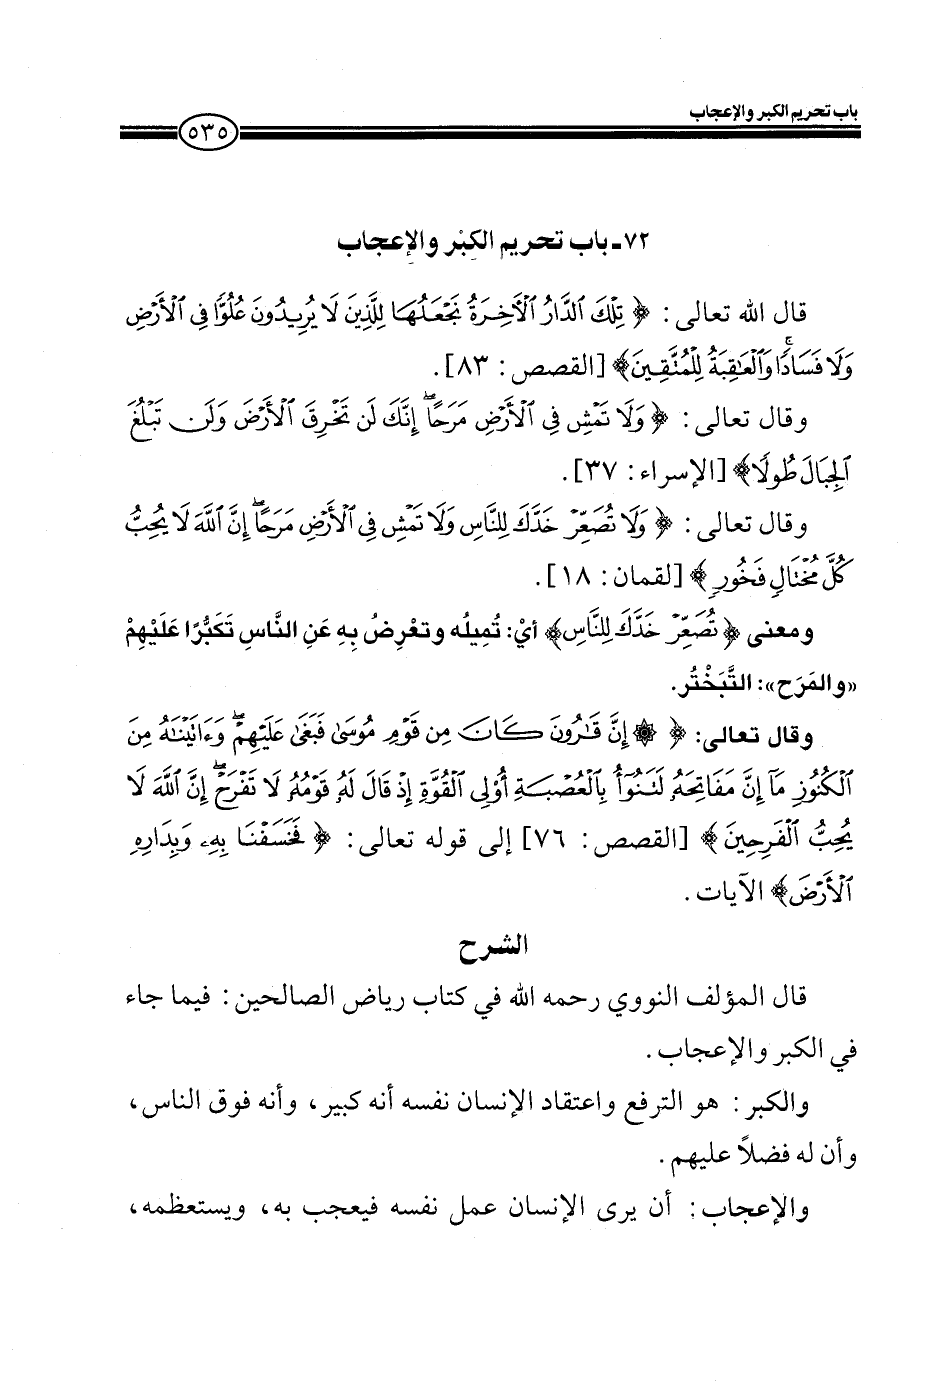 باب تحريم الكبر والإعجاب
٥٣٥
٧٢ـ باب تحريم الكِبْر والإعجاب
قال الله تعالى: ﴿ تِلْكَ ٱلدَّارُ ٱلْأَخِرَةُ نَجْعَلُهَا لِلَّذِينَ لَا يُرِيدُونَ عُلُوًّا فِى ٱلْأَرْضِ
وَلَا فَسَادًا وَٱلْعَٰقِبَةُ لِلْمُتَّقِينَ﴾ [القصص: ٨٣].
وقال تعالى: ﴿ وَلَا تَمْشِ فِى ٱلْأَرْضِ مَرَحًا ۖ إِنَّكَ لَن تَخْرِقَ ٱلْأَرْضَ وَلَن تَبْلُغَ
ٱلْجِبَالَ طُولًا﴾ [الإسراء: ٣٧].
وقال تعالى: ﴿ وَلَا تُصَعِّرْ خَدَّكَ لِلنَّاسِ وَلَا تَمْشِ فِى ٱلْأَرْضِ مَرَحًا ۖ إِنَّ ٱللَّهَ لَا يُحِبُّ
كُلَّ مُخْتَالٍ فَخُورٍ ﴾ [لقمان: ١٨].
ومعنى ﴿ تُصَعِّرْ خَدَّكَ لِلنَّاسِ﴾ أيْ: تُميلُه وتعْرِضُ بِهِ عَنِ النَّاسِ تَكَبُّرًا عَلَيْهِمْ
«والمَرَح»: التَّبَخْتُر.
وقال تعالى: ﴿ ۞ إِنَّ قَٰرُونَ كَانَ مِن قَوْمِ مُوسَىٰ فَبَغَىٰ عَلَيْهِمْ ۖ وَءَاتَيْنَٰهُ مِنَ
ٱلْكُنُوزِ مَآ إِنَّ مَفَاتِحَهُۥ لَتَنُوٓأُ بِٱلْعُصْبَةِ أُو۟لِى ٱلْقُوَّةِ إِذْ قَالَ لَهُۥ قَوْمُهُۥ لَا تَفْرَحْ ۖ إِنَّ ٱللَّهَ لَا
يُحِبُّ ٱلْفَرِحِينَ ﴾ [القصص: ٧٦] إلى قوله تعالى: ﴿ فَخَسَفْنَا بِهِۦ وَبِدَارِهِ
ٱلْأَرْضَ﴾ الآيات.
الشرح
قال المؤلف النووي رحمه الله في كتاب رياض الصالحين: فيما جاء
في الكبر والإعجاب.
والكبر: هو الترفع واعتقاد الإنسان نفسه أنه كبير، وأنه فوق الناس،
وأن له فضلاً عليهم.
والإعجاب: أن يرى الإنسان عمل نفسه فيعجب به، ويستعظمه،